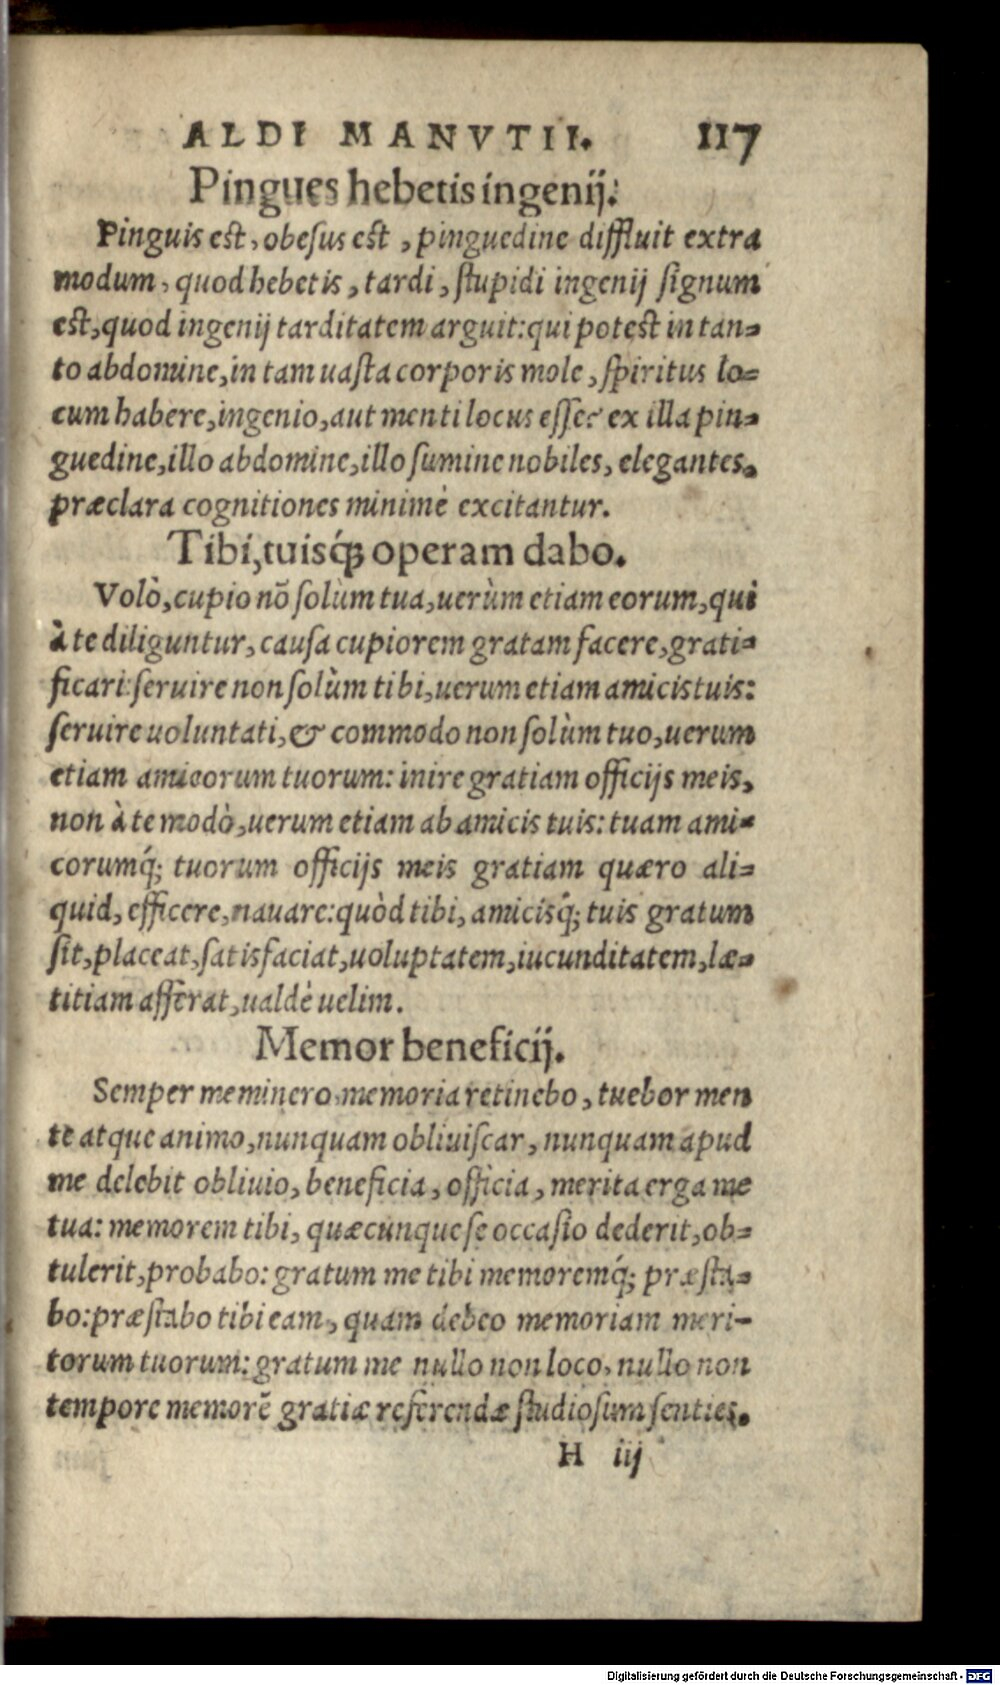 ALDI MANVTII. 117
Pingues hebetis ingenij.
Pinguis est, obesus est, pinguedine diffluit extra
modum, quod hebetis, tardi, stupidi ingenij signum
est, quod ingenij tarditatem arguit: qui potest in tan-
to abdomine, in tam uasta corporis mole, spiritus lo-
cum habere, ingenio, aut menti locus esse? ex illa pin-
guedine, illo abdomine, illo sumine nobiles, elegantes,
præclara cognitiones minimè excitantur.
Tibi, tuisq́; operam dabo.
Volò, cupio nõ solùm tua, uerùm etiam eorum, qui
à te diliguntur, causa cupiorem gratam facere, grati-
ficari: seruire non solùm tibi, uerum etiam amicis tuis:
seruire uoluntati, & commodo non solùm tuo, uerum
etiam amicorum tuorum: inire gratiam officijs meis,
non à te modò, uerum etiam ab amicis tuis: tuam ami-
corumq́; tuorum officijs meis gratiam quæro ali-
quid, efficere, nauare: quòd tibi, amicisq́; tuis gratum
sit, placeat, satisfaciat, uoluptatem, iucunditatem, læ-
titiam afferat, ualdè uelim.
Memor beneficij.
Semper meminero, memoria retinebo, tuebor men
te atque animo, nunquam obliuiscar, nunquam apud
me delebit obliuio, beneficia, officia, merita erga me
tua: memorem tibi, quæcunque se occasio dederit, ob-
tulerit, probabo: gratum me tibi memoremq́; præsta-
bo: præstabo tibi eam, quam debeo memoriam meri-
torum tuorum: gratum me nullo non loco, nullo non
tempore memorẽ gratiæ referendæ studiosum senties.
H iij
Digitalisierung gefördert durch die Deutsche Forschungsgemeinschaft - DFG